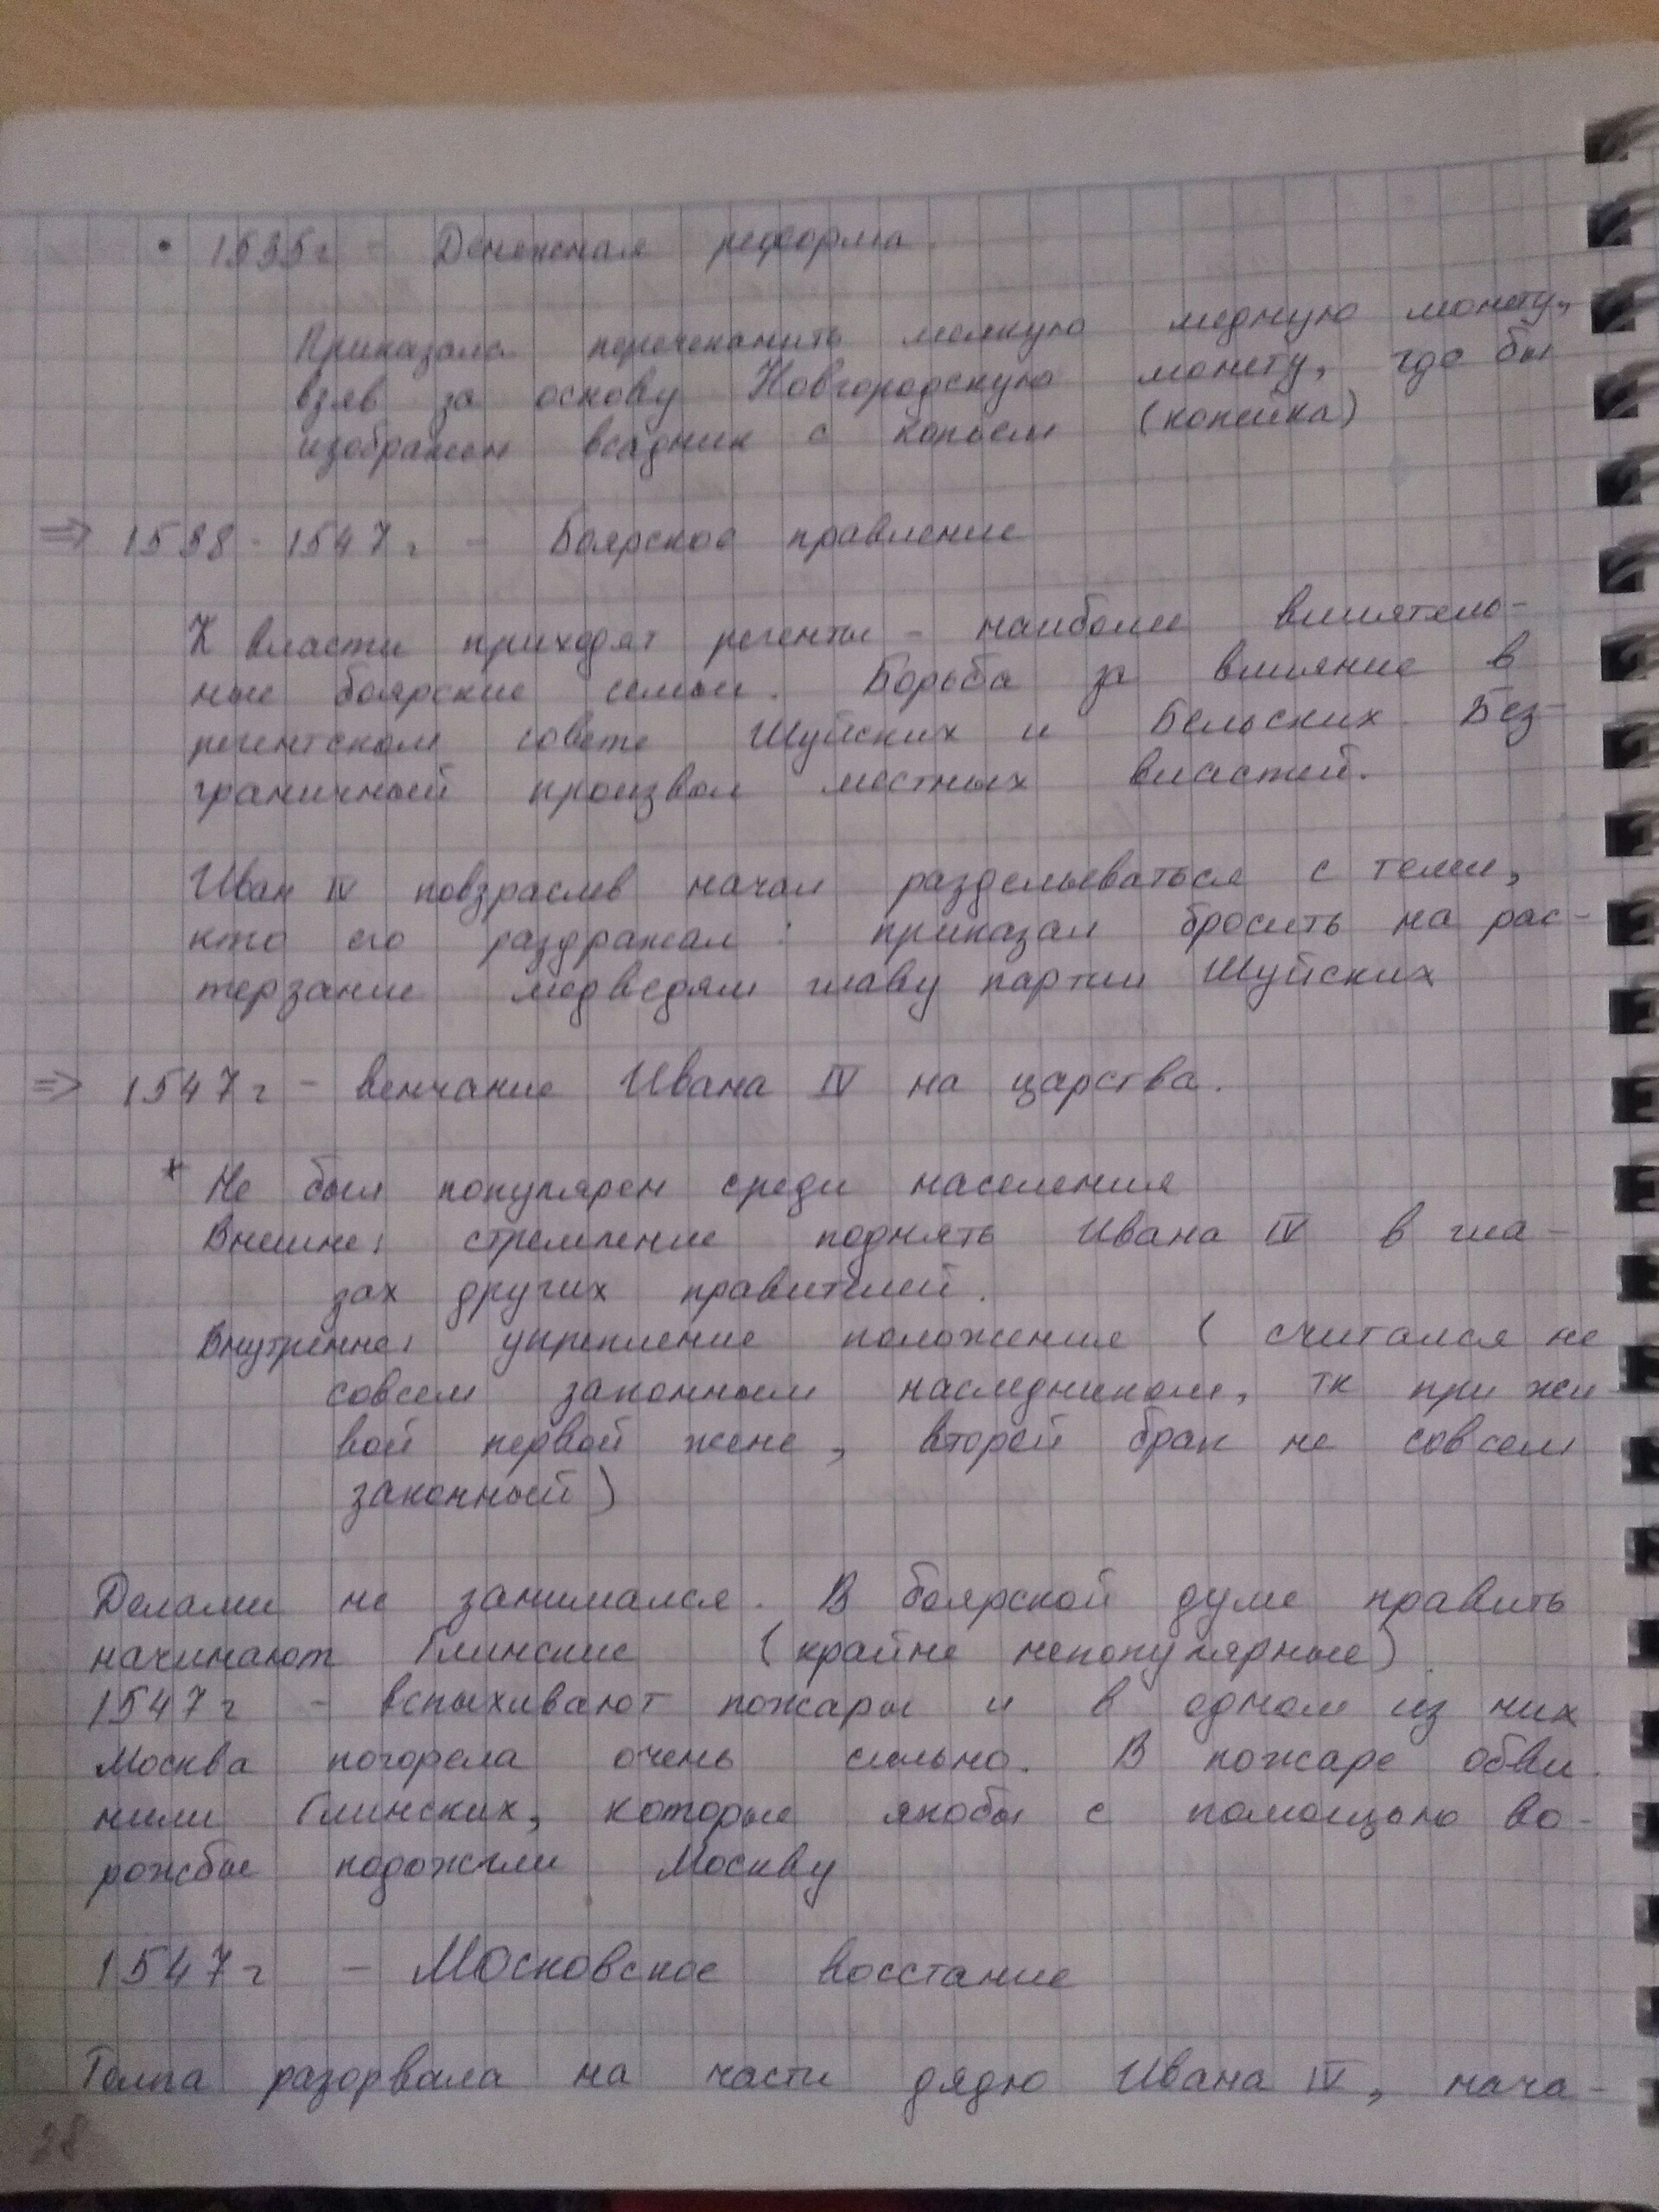 • 1535г - Денежная реформа.
Приказала перечеканить мелкую медную монету,
взяв за основу Новгородскую монету, где бы
изображен всадник с копьем (копейка)
⇒ 1538 - 1547г - Боярское правление
К власти приходят регенты - наиболее влиятель-
ные боярские семьи. Борьба за влияние в
регентском совете Шуйских и Бельских. Без-
граничный произвол местных властей.
Иван IV повзраслев начал разделываться с теми,
кто его раздражал: приказал бросить на рас-
терзание медведям главу партии Шуйских
⇒ 1547г - венчание Ивана IV на царства.
* Не был популярен среди населения
Внешне: стремление поднять Ивана IV в гла-
зах других правителей.
Внутренне: укрепление положения (считался не
совсем законным наследником, тк при жи-
вой первой жене, второй брак не совсем
законный)
Делами не занимался. В боярской думе править
начинают Глинские (крайне непопулярные).
1547г - вспыхивают пожары и в одном из них
Москва погорела очень сильно. В пожаре обви-
нили Глинских, которые якобы с помощью во-
рожбы подожгли Москву
1547г - Московское восстание
Толпа разорвала на части дядю Ивана IV, нача-
28